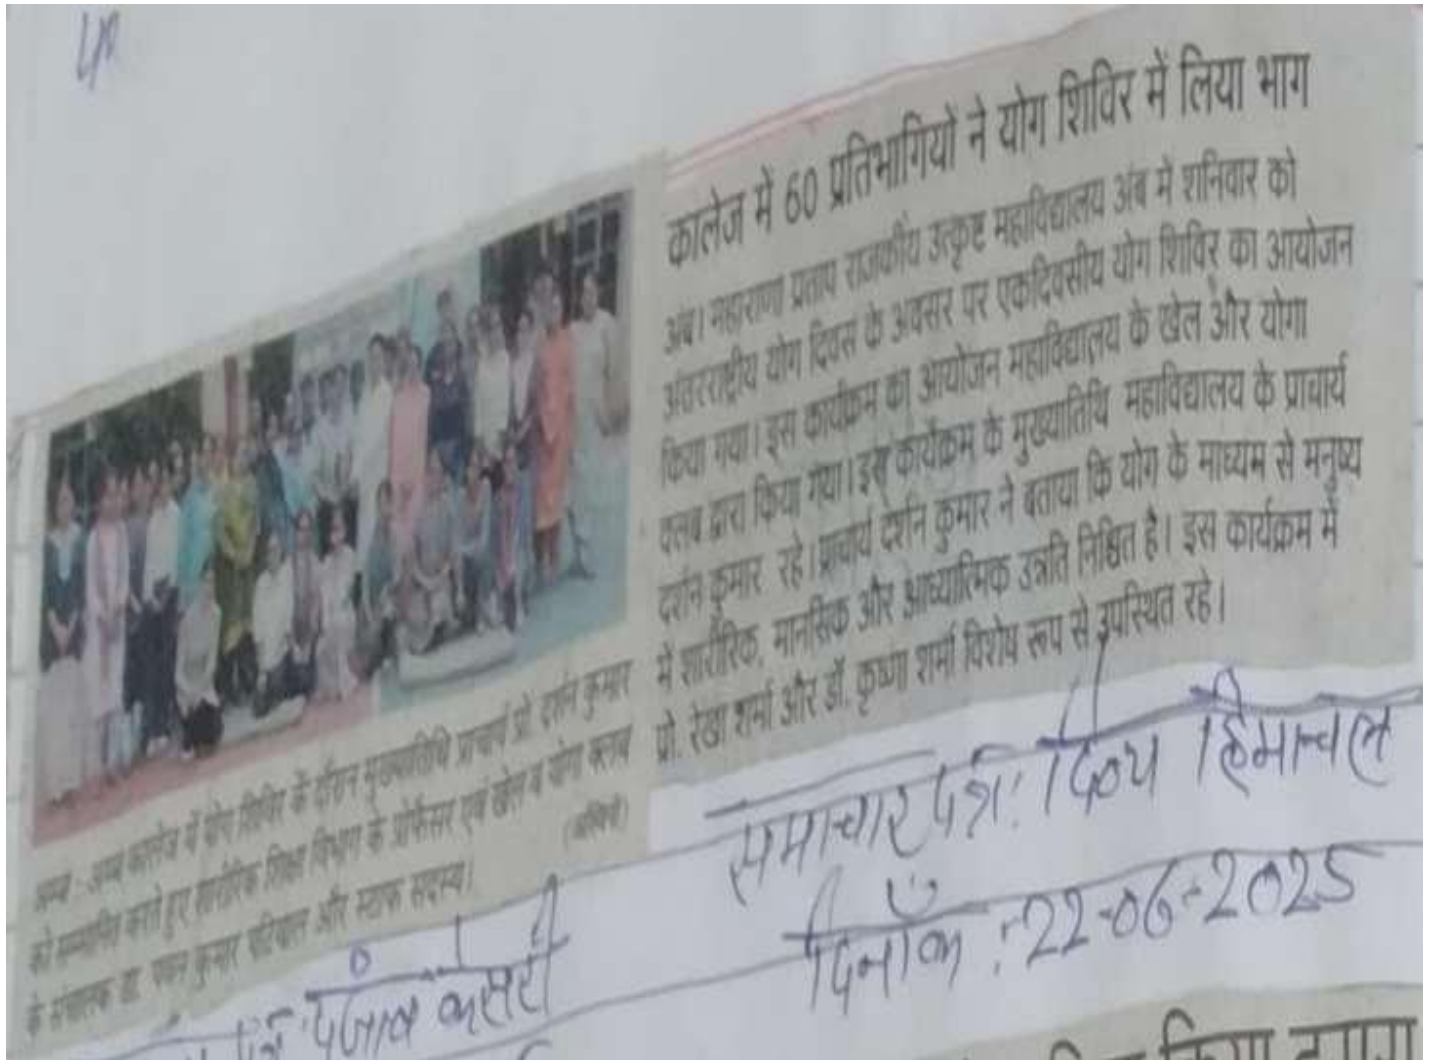 कालेज में 60 प्रतिभागियों ने योग शिविर में लिया भाग
अंब। महाराणा प्रताप राजकीय उत्कृष्ट महाविद्यालय अंब मे शनिवार को
अंतरराष्ट्रीय योग दिवस के अवसर पर एकदिवसीय योग शिविर का आयोजन
किया गया। इस कार्यक्रम का आयोजन महाविद्यालय के खेल और योगा
क्लब द्वारा किया गया। इस कार्यक्रम के मुख्यातिथि महाविद्यालय के प्राचार्य
दर्शन कुमार रहे। प्राचार्य दर्शन कुमार ने बताया कि योग के माध्यम से मनुष्य
में शारीरिक, मानसिक और आध्यात्मिक उन्नति निश्चित है। इस कार्यक्रम में
प्रो. रेखा शर्मा और डॉ. कृष्णा शर्मा विशेष रूप से उपस्थित रहे।
समाचार पत्र: दिव्य हिमाचल
दिनाँक : 22-06-2025
अम्ब : अम्ब कालेज में योग शिविर के दौरान मुख्यातिथि प्राचार्य प्रो. दर्शन कुमार
को सम्मानित करते हुए शारीरिक शिक्षा विभाग के प्रोफैसर एवं खेल व योगा क्लब
के संचालक डा. पवन कुमार पटियाल और स्टाफ सदस्य।
पत्र: पंजाब केसरी
किया